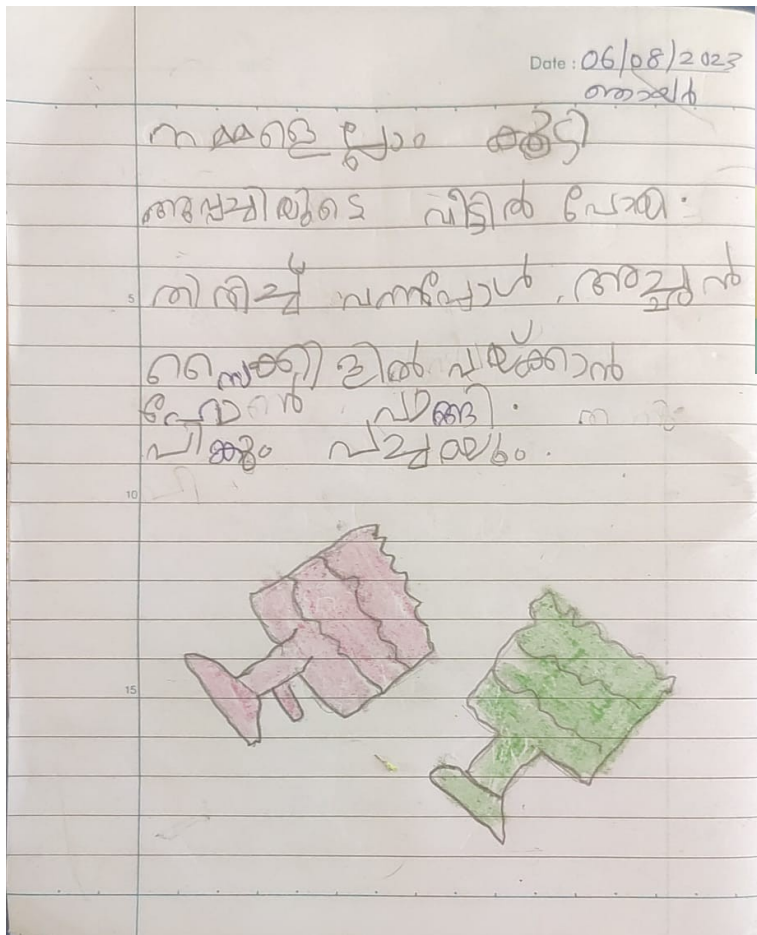 Date : 06/08/2023
ഞായർ
നമ്മളെല്ലാം കൂടി
അപ്പച്ചിയുടെ വീട്ടിൽ പോയി.
തിരിച്ച് വന്നപ്പോൾ അച്ഛൻ
സൈക്കിളിൽ വയ്ക്കാൻ
വാങ്ങി.
പിങ്കും പച്ചയും.
5
10
15